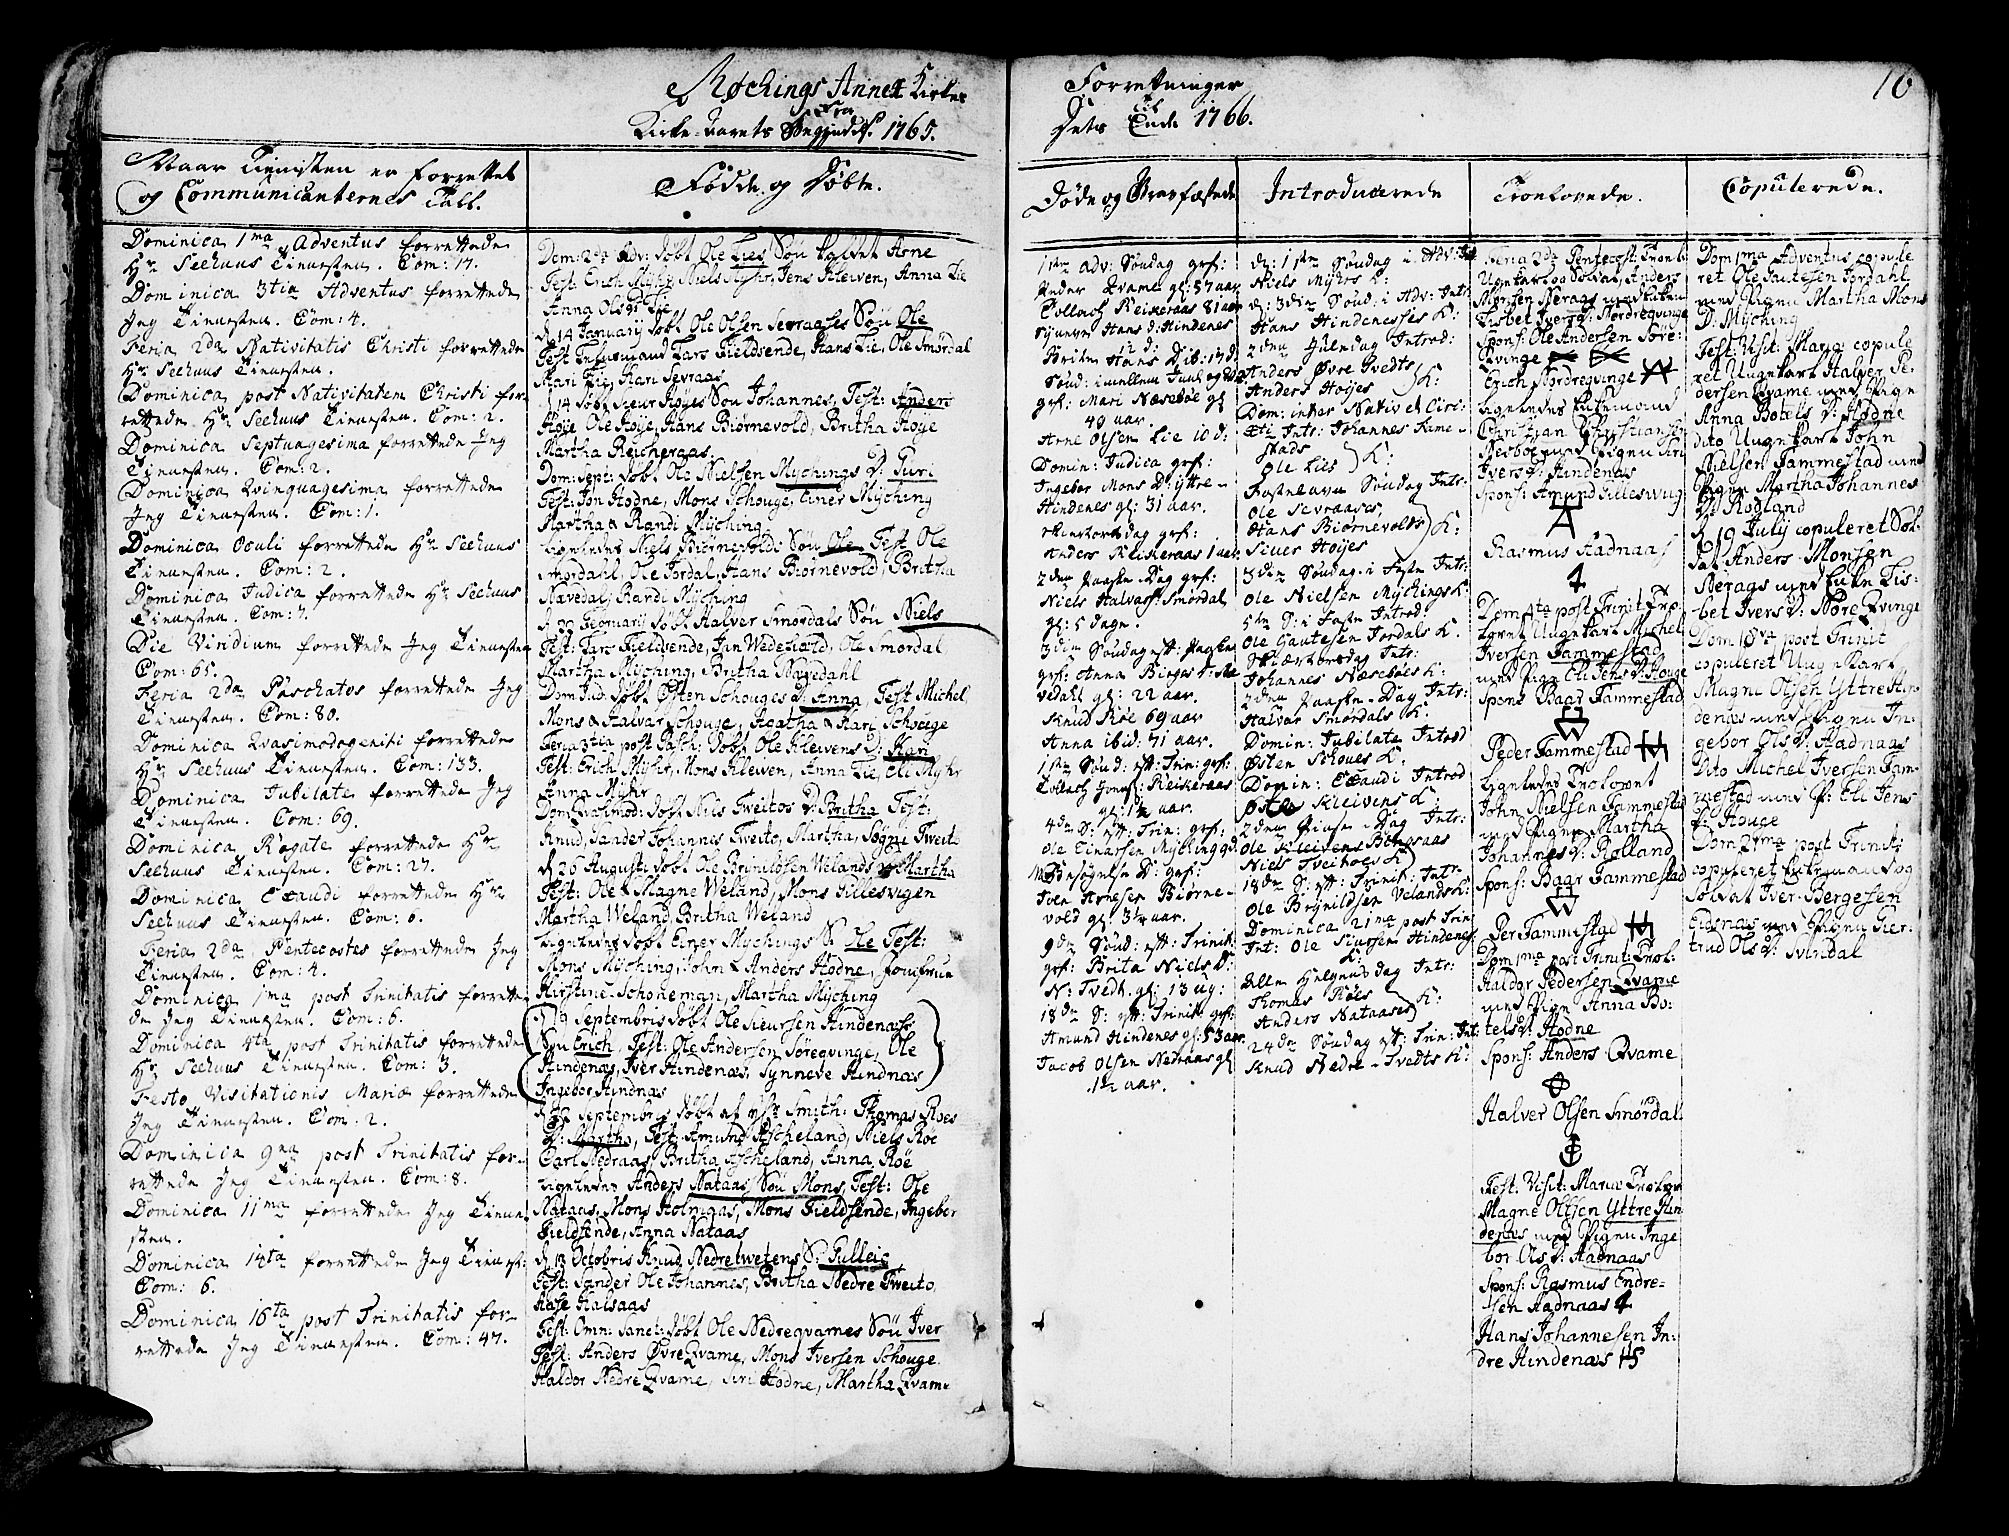 Møchings Annex Kirkes
Fra
Kirke-Aarets Begyndels. 1765.
Forretninger
til
Dets Ende 1766.
10
Naar Tienisten er forrettet
og Communicanternes Tall.
Fødde og Døbte.
Døde og Gravfæstede
Introducerede
Troelovede.
Copulerede.
Dominica 1ma Adventus forrettede
Hr Seehuus Tienesten. Com: 17.
Dominica 3tia Adventus forrettede
Jeg Tienesten. Com: 4.
Feria 2da Nativitatis Christi forrettede
Hr Seehuus Tienesten.
Dominica post Nativitatem Christi for-
rettede Hr Seehuus Tienesten. Com: 2.
Dominica Septuagesima forrettede Jeg
Tienesten. Com: 2.
Dominica Qvinquagesima forrettede
Jeg Tienesten. Com: 1.
Dominica Oculi forrettede Hr Seehuus
Tienesten. Com: 2.
Dominica Judica forrettede Hr Seehuus
Tienesten. Com: 7.
Die Viridium forrettede Jeg Tienesten
Com: 65.
Feria 2da Paschatos forrettede Jeg
Tienesten. Com: 80.
Dominica Qvasimodogeniti forrettede
Hr Seehuus Tienesten. Com: 133.
Dominica Jubilate forrettede Jeg
Tienesten. Com: 69.
Dominica Rogate forrettede Hr
Seehuus Tienesten. Com: 27.
Dominica Exaudi forrettede Hr
Seehuus Tienesten. Com: 6.
Feria 2da Pentecostes forrettede Jeg
Tienesten. Com: 4.
Dominica 1ma post Trinitatis forrette-
de Jeg Tienesten. Com: 6.
Dominica 4ta post Trinitatis forrettede
Hr Seehuus Tienesten. Com: 3.
Festo Visitationis Mariæ forrettede
Jeg Tienesten. Com: 2.
Dominica 9na post Trinitatis for-
rettede Jeg Tienesten. Com: 8.
Dominica 11ma forrettede Jeg Tiene-
sten.
Dominica 14ta forrettede Jeg Tienest:
Com: 6.
Dominica 16ta post Trinitatis for-
rettede Jeg Tienesten. Com: 47.
Dom: 2da Adv: døbt Ole Lies Søn kaldet Arne
Test: Erich Myhr, Niels Myhr, Jens Kleiven, Anna Lie
Anna Ols D: Lie
d. 14 January døbt Ole Olsen Sevraases Søn Ole
Test: Lars Fieldsende, Hans Lie, Ole Smørdal
Mari Lie, Kari Sevraas
d. 14 døbt Siur Høyes Søn Johannes, Test: Anders
Høye Ole Høye, Hans Biørnevold, Britha Høye
Martha Reicheraas
Dom: Sept: døbt Ole Nielsen Mychings D: Guri
Test: Jon Hodne, Mons Schouge, Einer Myching
Martha & Randi Myching
Ligeledes Niels Biørnevolds Søn Ole Test: Ole
Smørdahl, Ole Fordal, Hans Biørnevold, Britha
Nævedal, Randi Myching
d. 22 February døbt Halver Smørdals Søn Niels
Test: Lars Fieldsende, Jan Wedefield, Ole Smørdal
Martha Myching, Britha Nævedahl
Dom: Jud: døbt Østen Schouges D: Anna Test: Michel
Mons & Halvar Schouge, Agatha & Kari Schouge
Feria 3tia post Pasch: døbt Ole Kleivens D: Kari
Test: Erich Myhr, Mons Kleiven, Anna Lie, Eli Myhr
Anna Myhr
Dom: Qvasimod: døbt Nils Tweitos D: Britha Test:
Knud, Sander Johannis Tweito, Martha, Søgni Tweito
d. 26 Augusti døbt Ole Brynildsen Welands D: Martha
Test: Ole & Magne Weland, Mons Lillesvigen
Martha Weland, Britha Weland
Ligeledes døbt Einer Mychings S: Ole Test:
Mons Myching, John & Anders Hodne, Jomfrue
Kirstine Schoneman, Martha Myching
d. 19 Septembris døbt Ole Siursen Hindenæss
Søn Erich, Test: Ole Andersen Søreqvinge, Ole
Hindenæs, Iver Hindenæs, Synneve Hindnæs
Ingebor Hindnæs
d. 22 Septembris døbt af Hr Smith: Thomas Røes
D: Martha, Test: Amund Ascheland, Niels Røe
Carl Nedraas, Britha Ascheland, Anna Røe
Ligeledes Anders Nataas Søn Mons Test: Ole
Nataas, Mons Holmaas, Mons Fieldsende, Ingebor
Fieldsende, Anna Nataas
d. 13 Octobris Knud Nedretwetens S: Gulleic
Test: Sander Ole Johannes, Britha Nedre Tweito,
Aase Halsaas
Fest: Omn: Sanct: døbt Ole Nedreqvames Søn Iver
Test: Anders Øvre Qvame, Mons Iversen Schouge
Haldor Nedre Qvame, Siri Hodne, Martha Qvame
1ste Adv: Søndag grf:
Peder Qvame gl: 57 aar
Tollach Reikeraas 81 aar
Synneve Hans D: Hindenes
12 d:
Briten Hans D: ib: 17 d:
Sønd: imellem Juul og
grf: Mari Næsebøe gl
40 aar
Arne Olsen Lie 10 d:
Domin: Judica grf:
Ingebor Mons D: Yttre-
Hindenes gl: 31 aar.
Skiertorsdag grf:
Anders Reikeraas 1 aar
2den Paaske-Dag grf:
Niels Halvars: Smørdal
gl: 5 dage.
3die Søndag eft: Paaske
grf: Anna Birges D: Næ
vedahl gl: 22 aar.
Knud Røe 69 aar
Anna ibid: 71 aar.
1ste Sønd: eft: Trin: grf:
Tollach Reikeraas
gl: 1½ aar.
4de S: eft: Trin: grf:
Ole Einarsen Myching
M: Besøgelse D: grf:
Biørne-
vold gl: 3½ aar.
9de Sønd: eft: Trinit:
grf: Brita Niels D:
N: Tvedt. gl: 13 ug:
18de S: eft: Trinit: grf:
Amund Hindenes gl: 53 aar.
Jacob Olsen Nedraas gl
1½ aar.
d: 1ste Søndag i Adv: Int
Niels Myhrs K:
d: 3die Sønd: i Adv: Intr:
Hans Hindenesses K:
2den Juledag Introd:
Anders Øvre Tvedts
Anders Høyes K:
Dom: inter Nativ et Circ:
Intr: Johannes Rime-
stads
Ole Lies K:
Fastelavns Søndag Intr:
Ole Sevraases
Hans Biørnevolds K:
Siuer Høyes
3die Søndag i Faste Intr:
Ole Nielsen Mychings K:
5te S: i Faste Introd:
Ole Gautesen Fordals K:
Skiærtorsdag Intr:
Johannes Næsebøes K:
2den Paaske-Dag Intr:
Halvar Smørdals K:
Domin: Jubilate Introd
Østen Schoues K:
Domin: Exaudi Introd
Østen Kleivens K:
2den Pinse-Dag Intr:
Ole Kleivens
Niels Tveitoes K:
18de S: eft: Trinit: Intr:
Ole Brynildsen Velands K:
Dominica 21ma post Trin
Int: Ole Siursen Hindenes
K:
Alle Helgens Dag Intr:
Thomas Røes
Anders Nataases K:
24de Søndag eft: Trin: Int:
Knud Nedre-Tvedts K:
Feria 2da Pentecost: Troel:
Ungkarl og Soldat, Anders
Monsen Neraas med Enken
Lisbet Ivers D: Nordreqvinge
Spons: Ole Andersen Søre-
Qvinge
Erich Nordreqvinge
Ligeledes Enkemand
Christian Christians:
Næsbøe med Pigen Siri
Ivers D: Hindenæs
Spons: Amund Lillesvug
A
Rasmus Hadnaas
4
Dom 4ta post Trinit: Tro-
lovet Ungekarl Michel
Iversen Tammestad
med Pige Eli Jens D: Houge
Spons Baar Tammestad
Peder Tammestad
Ligeledes Trolowet
John Nielsen Tammestad
med Pigen Martha
Johannes D: Rolland
Spons: Baar Tammestad
Per Tammestad
Dom 1ma post Trinit: Trol:
Haldor Pedersen Qvame
med Pigen Anna Bo-
tels D: Hodne
Spons: Anders Qvame
Halver Olsen Smørdal
Fest: Visit: Mariæ Trolov:
Magne Olsen Yttre Hin
denæs med Pigen Inge
bor Ols D: Hadnaas
Spons: Rasmus Endre-
sen Hadnaas 4
Hans Johannesen In-
dre Hindenæs HS
Dom 1ma Adventus copule
ret Ole Gautesen Fordahl
med Pigen Martha Mons
D: Myching
Fest: Visit: Mariæ copule
ret Ungekarl Halver Pe-
dersen Qvame med Pige
Anna Botels D: Hodne
dito Ungekarl John
Nielsen Tammestad med
Pigen Martha Johannes
D: Rodland
d. 19 July copuleret Sol-
dat Anders Monsen
Neraas med Enke Lis-
bet Ivers D: Nøre Qvinge
Dom 18va post Trinit
copuleret Ung Karl
Magne Olsen Yttre Hin-
denæs med Pigen In-
gebor Ols D: Hadnaas
Dito Michel Iversen Tam-
mestad med P: Eli Jens
D: Houge
Dom 21ma post Trinit:
copuleret Enkemand og
Soldat Iver Bergesen
Eidsnæs med Pigen Gier-
trud Ols D: Svindal